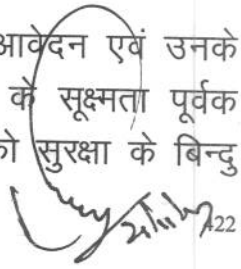 आवेदन एवं उनके
के सूक्ष्मता पूर्वक
को सुरक्षा के बिन्दु
22